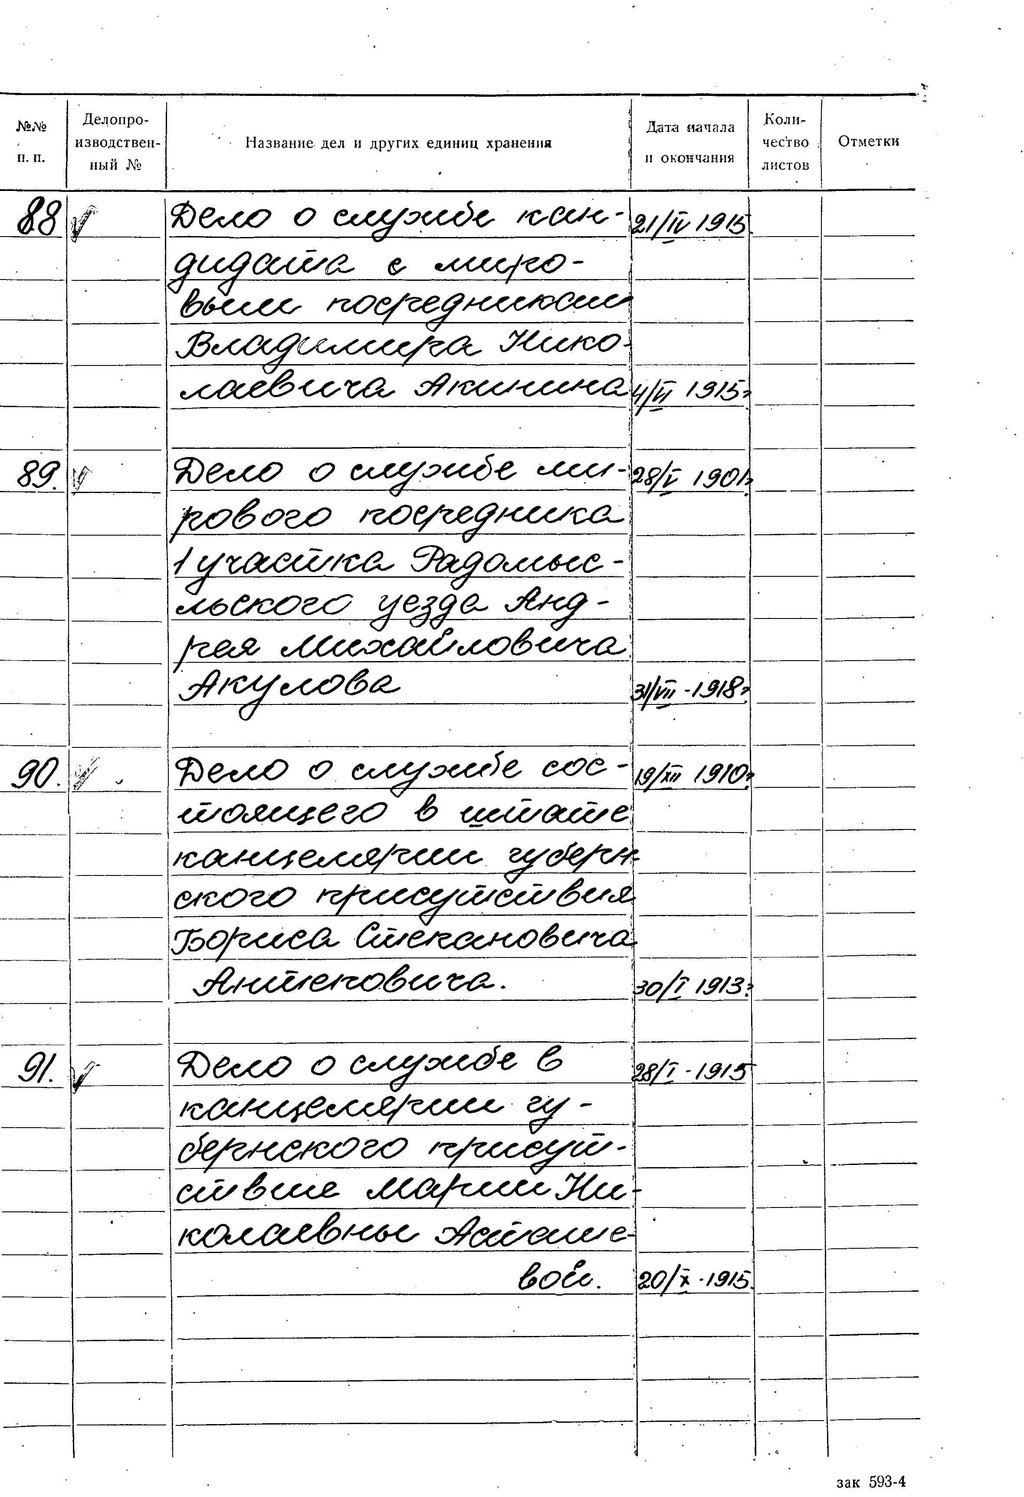 №№ п. п. Делопроизводственный № Название дел и других единиц хранения Дата начала и окончания Количество листов Отметки
88 Дело о службе кан- 21/IV 1915
дидата с миро-
выми посредникам
Владимира Нико-
лаевича Акинина 4/VI 1915г
89. Дело о службе ми- 28/V 1901г.
рового посредника
1 участка Радомыс-
льского уезда Анд-
рея Михайловича
Акулова 31/VII - 1918г
90. Дело о службе сос- 19/XII 1910г
тоящего в штате
канцелярии губерн-
ского присутствия
Бориса Степановича
Антеповича. 30/I 1913г
91. Дело о службе в 28/I - 1915
канцелярии гу-
бернского присут-
ствие Марии Ни-
колаевны Асташе-
вой. 20/X - 1915.
зак 593-4